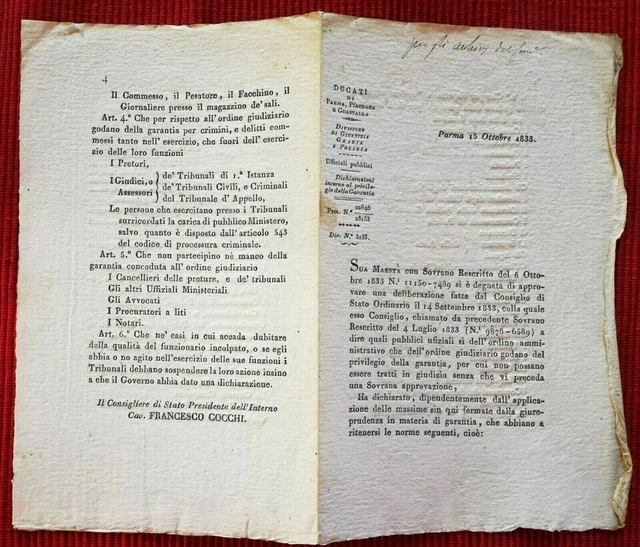 4
Il Commesso, il Pesatore, il Facchino, il
Giornaliere presso il magazzino de' sali.
Art. 4.° Che per rispetto all'ordine giudiziario
godano della garantia per crimini, e delitti com-
messi tanto nell' esercizio, che fuori dell' eserci-
zio delle loro funzioni
I Pretori,
I Giudici, o
Assessori
de' Tribunali di 1.ª Istanza
de' Tribunali Civili, e Criminali
del Tribunale d' Appello,
Le persone che esercitano presso i Tribunali
surricordati la carica di pubblico Ministero,
salvo quanto è disposto dall'articolo 543
del codice di processura criminale.
Art. 5.° Che non partecipino nè manco della
garantia conceduta all' ordine giudiziario
I Cancellieri delle preture, e de' tribunali
Gli altri Uffiziali Ministeriali
Gli Avvocati
I Procuratori a liti
I Notari.
Art. 6.° Che ne' casi in cui accada dubitare
della qualità del funzionario incolpato, o se egli
abbia o no agito nell'esercizio delle sue funzioni i
Tribunali debbano sospendere la loro azione insino
a che il Governo abbia dato una dichiarazione.
Il Consigliere di Stato Presidente dell'Interno
Cav. FRANCESCO COCCHI.
per gli archivj del
DUCATI
DI
PARMA, PIACENZA
E GUASTALLA
DIVISIONE
DI GIUSTIZIA
GRAZIA
E POLIZIA
Ufficiali pubblici
Dichiarazioni
intorno al privile-
gio della Garantia
Prot. N.°
22846
23153
Div. N.° 3135.
Parma 15 Ottobre 1833.
SUA MAESTÀ con Sovrano Rescritto del 6 Otto-
bre 1833 N.i 11150-7489 si è degnata di approva-
vare una deliberazione fatta dal Consiglio di
Stato Ordinario il 14 Settembre 1833, colla quale
esso Consiglio, chiamato da precedente Sovrano
Rescritto del 4 Luglio 1833 (N.i 9876-6589) a
dire quali pubblici ufiziali sì dell'ordine ammi-
nistrativo che dell'ordine giudiziario godano del
privilegio della garantia, per cui non possano
essere tratti in giudizio senza che vi preceda
una Sovrana approvazione,
Ha dichiarato, dipendentemente dall' applica-
zione delle massime sin quì fermate dalla giure-
prudenza in materia di garantia, che abbiano a
ritenersi le norme seguenti, cioè: